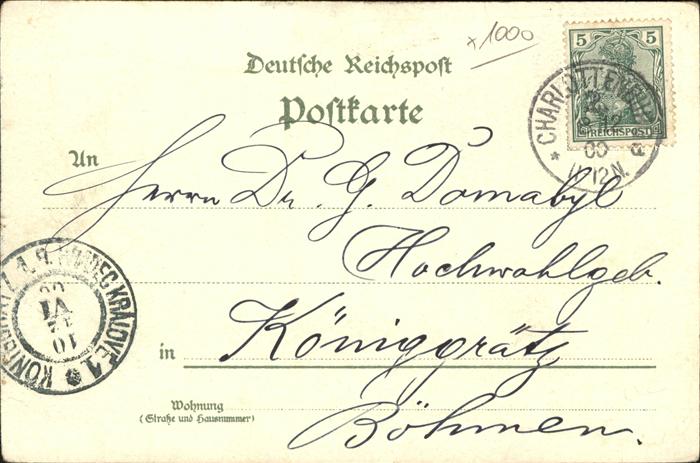 x1000
Deutsche Reichspost
Postkarte
5 5
REICHSPOST
CHARLOTTENBURG
00
11-12N.
* a
An Herrn Dr. G. Domabyl
Hochwohlgeb.
in Königgrätz
Wohnung
(Straße und Hausnummer)
Böhmen.
KÖNIGGRÄTZ 1 HRADEC KRÁLOVÉ 1
10
VI
00